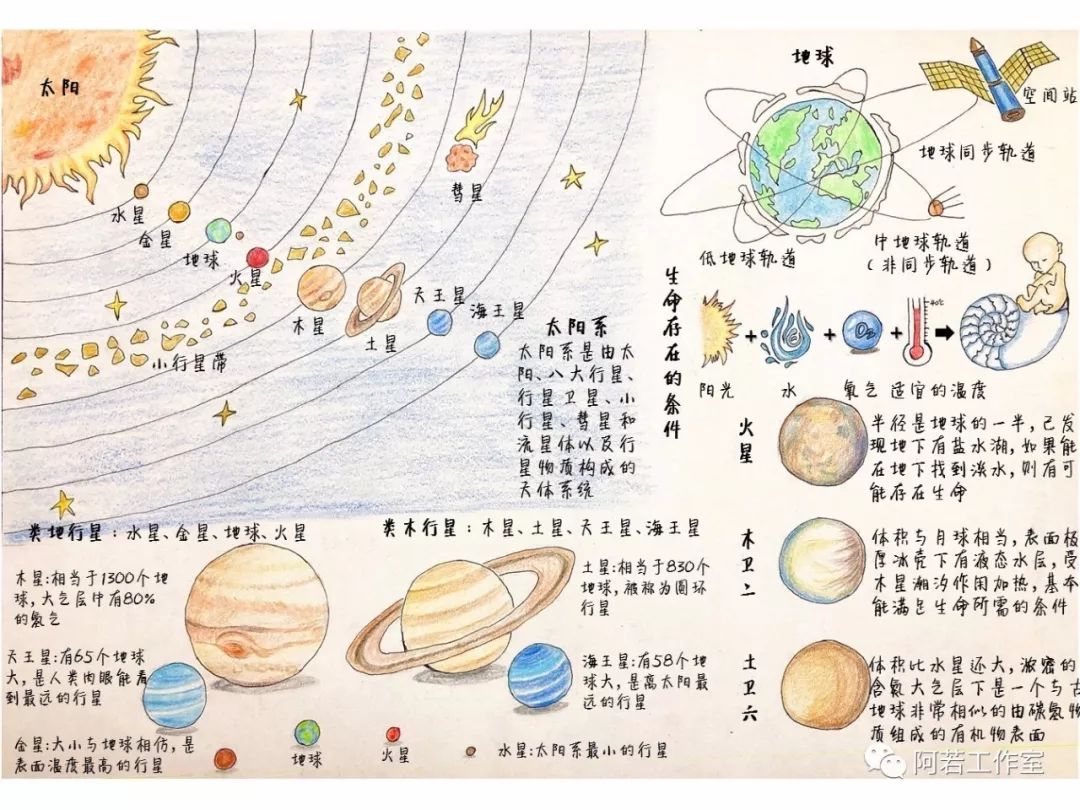 太阳
水星
金星
地球
火星
小行星带
木星
土星
天王星
海王星
彗星
太阳系
太阳系是由太
阳、八大行星、
行星卫星、小
行星、彗星和
流星体以及行
星物质构成的
天体系统
地球
空间站
地球同步轨道
低地球轨道
中地球轨道
(非同步轨道)
生命存在的条件
+
+
O₂
+
40℃
阳光
水
氧气
适宜的温度
火星
半径是地球的一半,已发
现地下有盐水湖,如果能
在地下找到淡水,则有可
能存在生命
木卫二
体积与月球相当,表面极
厚冰壳下有液态水层,受
木星潮汐作用加热,基本
能满足生命所需的条件
土卫六
体积比水星还大,浓密的
含氮大气层下是一个与古
地球非常相似的由碳氢物
质组成的有机物表面
类地行星:水星、金星、地球、火星
类木行星:木星、土星、天王星、海王星
木星:相当于1300个地
球,大气层中有80%
的氢气
土星:相当于830个
地球,被称为圆环
行星
天王星:有65个地球
大,是人类肉眼能看
到最远的行星
海王星:有58个地
球大,是离太阳最
远的行星
金星:大小与地球相仿,是
表面温度最高的行星
地球
火星
水星:太阳系最小的行星
阿若工作室